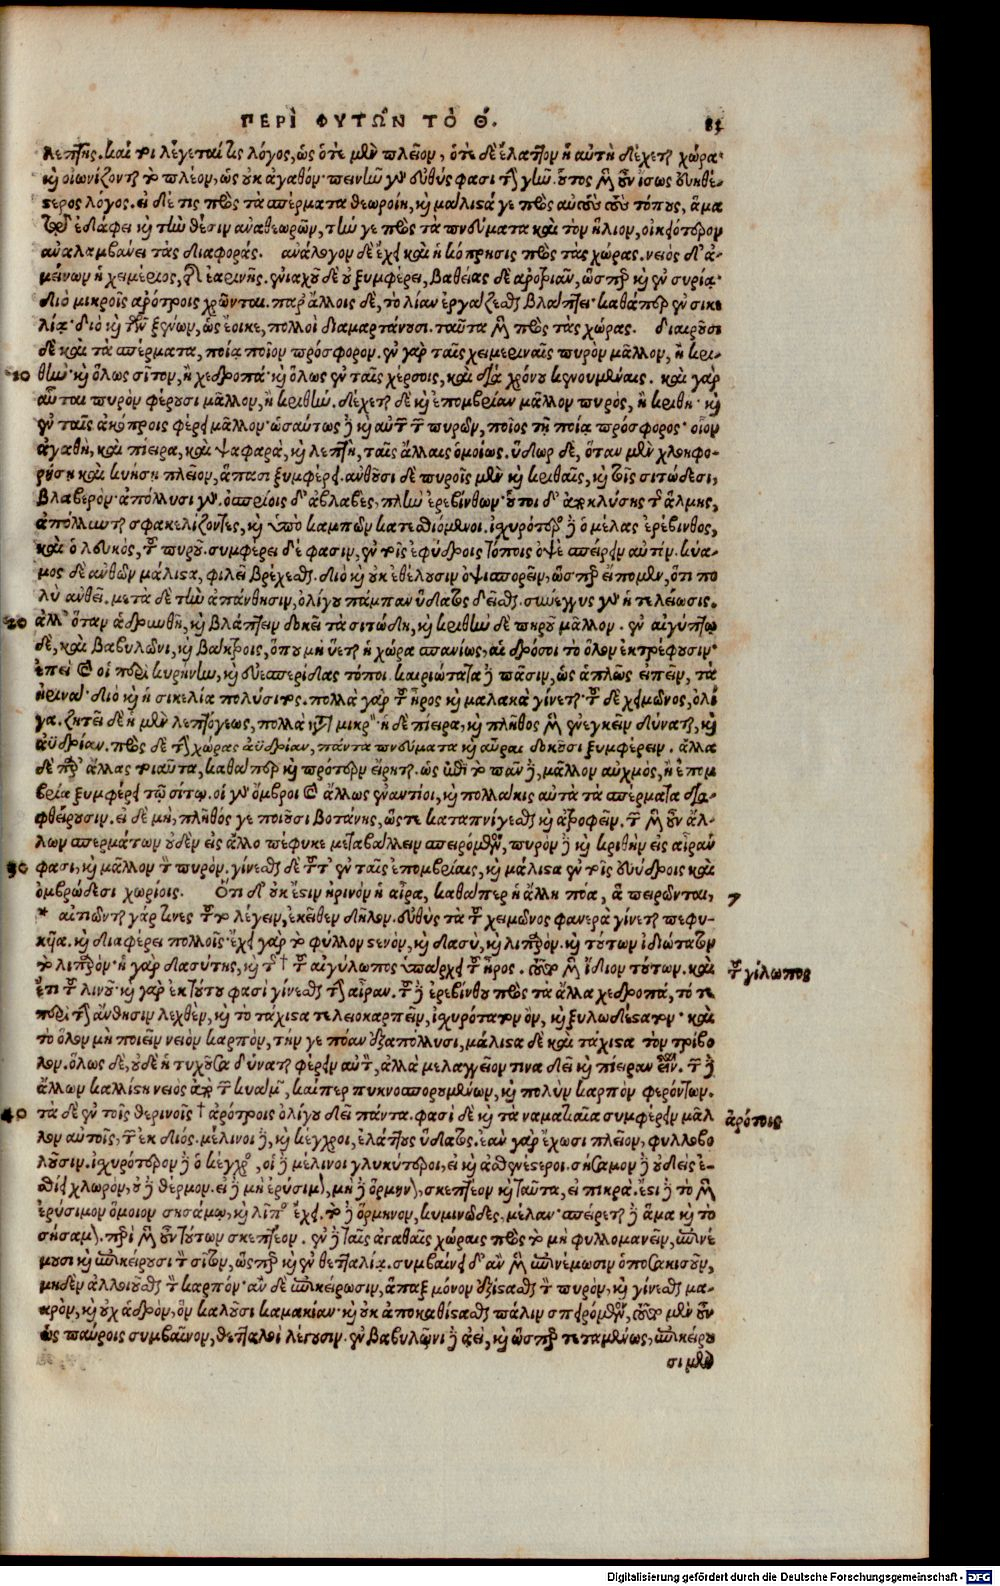 ΠΕΡῚ ΦΥΤΩ͂Ν ΤῸ Θ́.
λεπτῆς. καί τοι λέγεταί τις λόγος, ὡς ὁτὲ μὲν πλεῖον, ὁτὲ δὲ ἔλαττον ἡ αὐτὴ δέχεται χώρα·
καὶ οἰωνίζονται τὸ πλέον, ὡς οὐκ ἀγαθόν· πεινῆν γὰρ εὐθύς φασι τὴν γῆν. οὗτος μὲν οὖν ἴσως εὐηθέ-
στερος λόγος. εἰ δέ τις πρὸς τὰ σπέρματα θεωροίη, καὶ μάλιστά γε πρὸς αὐτοὺς τοὺς τόπους, ἅμα
τῷ ἐδάφει καὶ τὴν θέσιν ἀναθεωρῶν, τήν γε πρὸς τὰ πνεύματα καὶ τὸν ἥλιον, οἰκειότερον
ἀναλαμβάνει τὰς διαφοράς. ἀνάλογον δὲ ἔχει καὶ ἡ κόπρησις πρὸς τὰς χώρας. νειὸς δ' ἀ-
μείνων ἡ χειμερινὸς, τῆς ἐαρινῆς. ἐνιαχοῦ δὲ οὐ ξυμφέρει, βαθείας δὲ ἀροτριᾶν, ὥσπερ καὶ ἐν συρίᾳ·
διὸ μικροῖς ἀρότροις χρῶνται. παρ' ἄλλοις δὲ, τὸ λίαν ἐργάζεσθαι βλάπτει· καθάπερ ἐν σικε
λίᾳ· διὸ καὶ τῶν ξένων, ὡς ἔοικε, πολλοὶ διαμαρτάνουσι. ταῦτα μὲν πρὸς τὰς χώρας. διαιροῦσι
δὲ καὶ τὰ σπέρματα, ποίᾳ ποῖον πρόσφορον. ἐν γὰρ ταῖς χειμεριναῖς πυρὸν μᾶλλον, ἢ κρι-
10 θήν· καὶ ὅλως σῖτον, ἢ χεδροπά· καὶ ὅλως ἐν ταῖς χέρσοις, καὶ διὰ χρόνου κινουμέναις. καὶ γὰρ
αὗται πυρὸν φέρουσι μᾶλλον, ἢ κριθήν. δέχεται δὲ καὶ ἐπομβρίαν μᾶλλον πυρὸς, ἢ κριθὴ· καὶ
ἐν ταῖς ἀκόπροις φέρει μᾶλλον· ὡσαύτως δὲ καὶ αὐτῶν τῶν πυρῶν, ποῖος τῇ ποίᾳ πρόσφορος· οἷον
ἀγαθὴ, καὶ πίειρα, καὶ ψαφαρὰ, καὶ λεπτὴ, ταῖς ἄλλαις ὁμοίως. ὕδωρ δὲ, ὅταν μὲν χλοηφο-
ρήσῃ καὶ κυήσῃ πλεῖον, ἅπασι ξυμφέρει. ἀνθοῦσι δὲ πυροῖς μὲν καὶ κριθαῖς, καὶ τοῖς σιτώδεσι,
βλαβερόν· ἀπόλλυσι γὰρ. ὀσπρίοις δ' ἀβλαβὲς, πλὴν ἐρεβίνθων· οὗτοι δ' ἀποκλύσης τῆς ἅλμης,
ἀπόλλυνται σφακελίζοντες, καὶ ὑπὸ καμπῶν κατεσθιόμενοι. ἰσχυρότερος δὲ ὁ μέλας ἐρέβινθος,
καὶ ὁ λευκὸς, τοῦ πυροῦ. συμφέρει δέ φασιν, ἐν τοῖς ἐφύδροις τόποις ὀψὲ σπείρειν αὐτήν. κύα-
μος δὲ ἀνθῶν μάλιστα, φιλεῖ βρέχεσθαι. διὸ καὶ οὐκ ἐθέλουσιν ὀψισπορεῖν, ὥσπερ εἴπομεν, ὅτι πο
λὺ ἀνθεῖ. μετὰ δὲ τὴν ἀπάνθησιν, ὀλίγου πάμπαν ὕδατος δεῖσθαι. σύνεγγυς γὰρ ἡ τελέωσις.
20 ἀλλ' ὅταν ἁδρυνθῇ, καὶ βλάπτειν δοκεῖ τὰ σιτώδη, καὶ κριθὴν δὲ πηροῦ μᾶλλον. ἐν αἰγύπτῳ
δὲ, καὶ βαβυλῶνι, καὶ βάκτροις, ὅπου μὴ ὕεται ἡ χώρα σπανίως, αἱ δρόσοι τὸ ὅλον ἐκτρέφουσιν·
ἐπεὶ καὶ οἱ περὶ κυρήνην, καὶ εὐεσπερίδας τόποι. καιριώταται δὲ πᾶσιν, ὡς ἁπλῶς εἰπεῖν, τὰ
ἠρινά· διὸ καὶ ἡ σικελία πολύσιτος. πολλὰ γὰρ τοῦ ἦρος καὶ μαλακὰ γίνεται· τοῦ δὲ χειμῶνος, ὀλί
γα. ζητεῖ δὲ ἡ μὲν λεπτόγεως, πολλὰ κατὰ μικρόν· ἡ δὲ πίειρα, καὶ πλῆθος μὲν ἐνεγκεῖν δύναται, καὶ
ἀϋδρίαν. πρὸς δὲ τὴν χώρας ἀϋδρίαν, πάντα πνεύματα καὶ αὖραι δοκοῦσι ξυμφέρειν. ἄλλα
δὲ πρὸς ἄλλας τοιαῦτα, καθάπερ καὶ πρότερον εἴρηται. ὡς ἐπὶ τὸ πᾶν δὲ, μᾶλλον αὐχμὸς, ἢ ἐπομ
βρία ξυμφέρει τῷ σίτῳ. οἱ γὰρ ὄμβροι καὶ ἄλλως ἐναντίοι, καὶ πολλάκις αὐτὰ τὰ σπέρματα δια-
φθείρουσιν. εἰ δὲ μὴ, πλῆθός γε ποιοῦσι βοτάνης, ὥστε καταπνίγεσθαι καὶ ἀτροφεῖν. τῶν μὲν οὖν ἄλ-
λων σπερμάτων οὐδὲν εἰς ἄλλο πέφυκε μεταβάλλειν σπειρόμενον, πυρὸν δὲ καὶ κριθὴν εἰς αἶραν
30 φασὶ, καὶ μᾶλλον τὸν πυρόν. γίνεσθαι δὲ τοῦτ' ἐν ταῖς ἐπομβρίαις, καὶ μάλιστα ἐν τοῖς εὐύδροις καὶ
ὀμβρώδεσι χωρίοις. Ὅτι δ' οὐκ ἔστιν ἠρινὸν ἡ αἶρα, καθάπερ ἡ ἄλλη πόα, ἃ πειρῶνται, 7
* αἰτιῶνται γάρ τινες τοῦτο λέγειν, ἐκεῖθεν δῆλον. εὐθὺς τὰ τοῦ χειμῶνος φανερὰ γίνεται πεφυ-
κῆια. καὶ διαφέρει πολλοῖς· ἔχει γὰρ τὸ φύλλον στενὸν, καὶ δασὺ, καὶ λιπαρόν. καὶ τούτων ἰδιώτατον
τὸ λιπαρόν· ἡ γὰρ δασύτης, καὶ τῆς † τοῦ αἰγύλωπος ὑπάρχει τοῦ ἦρος. τοῦτο μὲν ἴδιον τούτων. καὶ τοῦ γίλωπος
ἔτι τοῦ λίνου· καὶ γὰρ ἐκ τούτου φασὶ γίνεσθαι τὴν αἶραν. τοῦ δὲ ἐρεβίνθου πρὸς τὰ ἄλλα χεδροπὰ, τό τε
περὶ τὴν ἄνθησιν λεχθὲν, καὶ τὸ τάχιστα τελειοκαρπεῖν, ἰσχυρότατον ὂν, καὶ ξυλωδέστατον· καὶ
τὸ ὅλον μὴ ποιεῖν νειὸν καρπὸν, τήν γε πόαν ἐξαπόλλυσι, μάλιστα δὲ καὶ τάχιστα τὸν τρίβο
λον. ὅλως δὲ, οὐδὲ ἡ τυχοῦσα δύναται φέρειν αὐτὸν, ἀλλὰ μελαγγεῖόν τινα δεῖ καὶ πίειραν εἶναι. τῶν δὲ
ἄλλων καλλίστη νειὸς ἀπὸ τῶν κυάμων, καίπερ πυκνοσπορουμένων, καὶ πολὺν καρπὸν φερόντων.
40 τὰ δὲ ἐν τοῖς θερινοῖς † ἀρότροις ὀλίγου δεῖ πάντα. φασὶ δὲ καὶ τὰ ναματιαῖα συμφέρειν μᾶλ ἀρότοις
λον αὐτοῖς, τῶν ἐκ διός. μέλινοι δὲ, καὶ κέγχροι, ἐλάττους ὕδατος. ἐὰν γὰρ ἔχωσι πλεῖον, φυλλοβο
λοῦσιν. ἰσχυρότερον δὲ ὁ κέγχρος, οἱ δὲ μέλινοι γλυκύτεροι, εἰ καὶ ἀσθενέστεροι. σήσαμον δὲ οὐδεὶς ἐ-
σθίει χλωρὸν, οὐ δὲ θέρμον. εἰ δὲ μὴ ἐρύσιμον, μὴ δὲ ὅρμηνον, σκεπτέον καὶ ταῦτα, εἰ πικρά. ἔστι δὲ τὸ μὲν
ἐρύσιμον ὅμοιον σησάμῳ, καὶ λίπος ἔχει. τὸ δὲ ὅρμηνον, κυμινῶδες, μέλαν· σπείρεται δὲ ἅμα καὶ τὸ
σήσαμον. περὶ μὲν οὖν τούτων σκεπτέον. ἐν δὲ ταῖς ἀγαθαῖς χώραις πρὸς τὸ μὴ φυλλομανεῖν, ἐπινέ
μουσι καὶ ἐπικείρουσι τὸν σῖτον, ὥσπερ καὶ ἐν θετταλίᾳ. συμβαίνει δ' ἂν μὲν ἐπινέμωσιν ὁποσακισοῦν,
μηδὲν ἀλλοιοῦσθαι τὸν καρπόν· ἂν δὲ ἐπικείρωσιν, ἅπαξ μόνον ἐξίστασθαι τὸν πυρὸν, καὶ γίνεσθαι μα-
κρὸν, καὶ οὐχ ἁδρὸν, ὃν καλοῦσι καμακίαν· καὶ οὐκ ἀποκαθίστασθαι πάλιν σπειρόμενον, τοῦτο μὲν οὖν
ὡς παύροις συμβαῖνον, θετταλοὶ λέγουσιν. ἐν βαβυλῶνι δὲ ἀεὶ, καὶ ὥσπερ τεταμένως, ἐπικείρου
σι μὲν
Digitalisierung gefördert durch die Deutsche Forschungsgemeinschaft - DFG